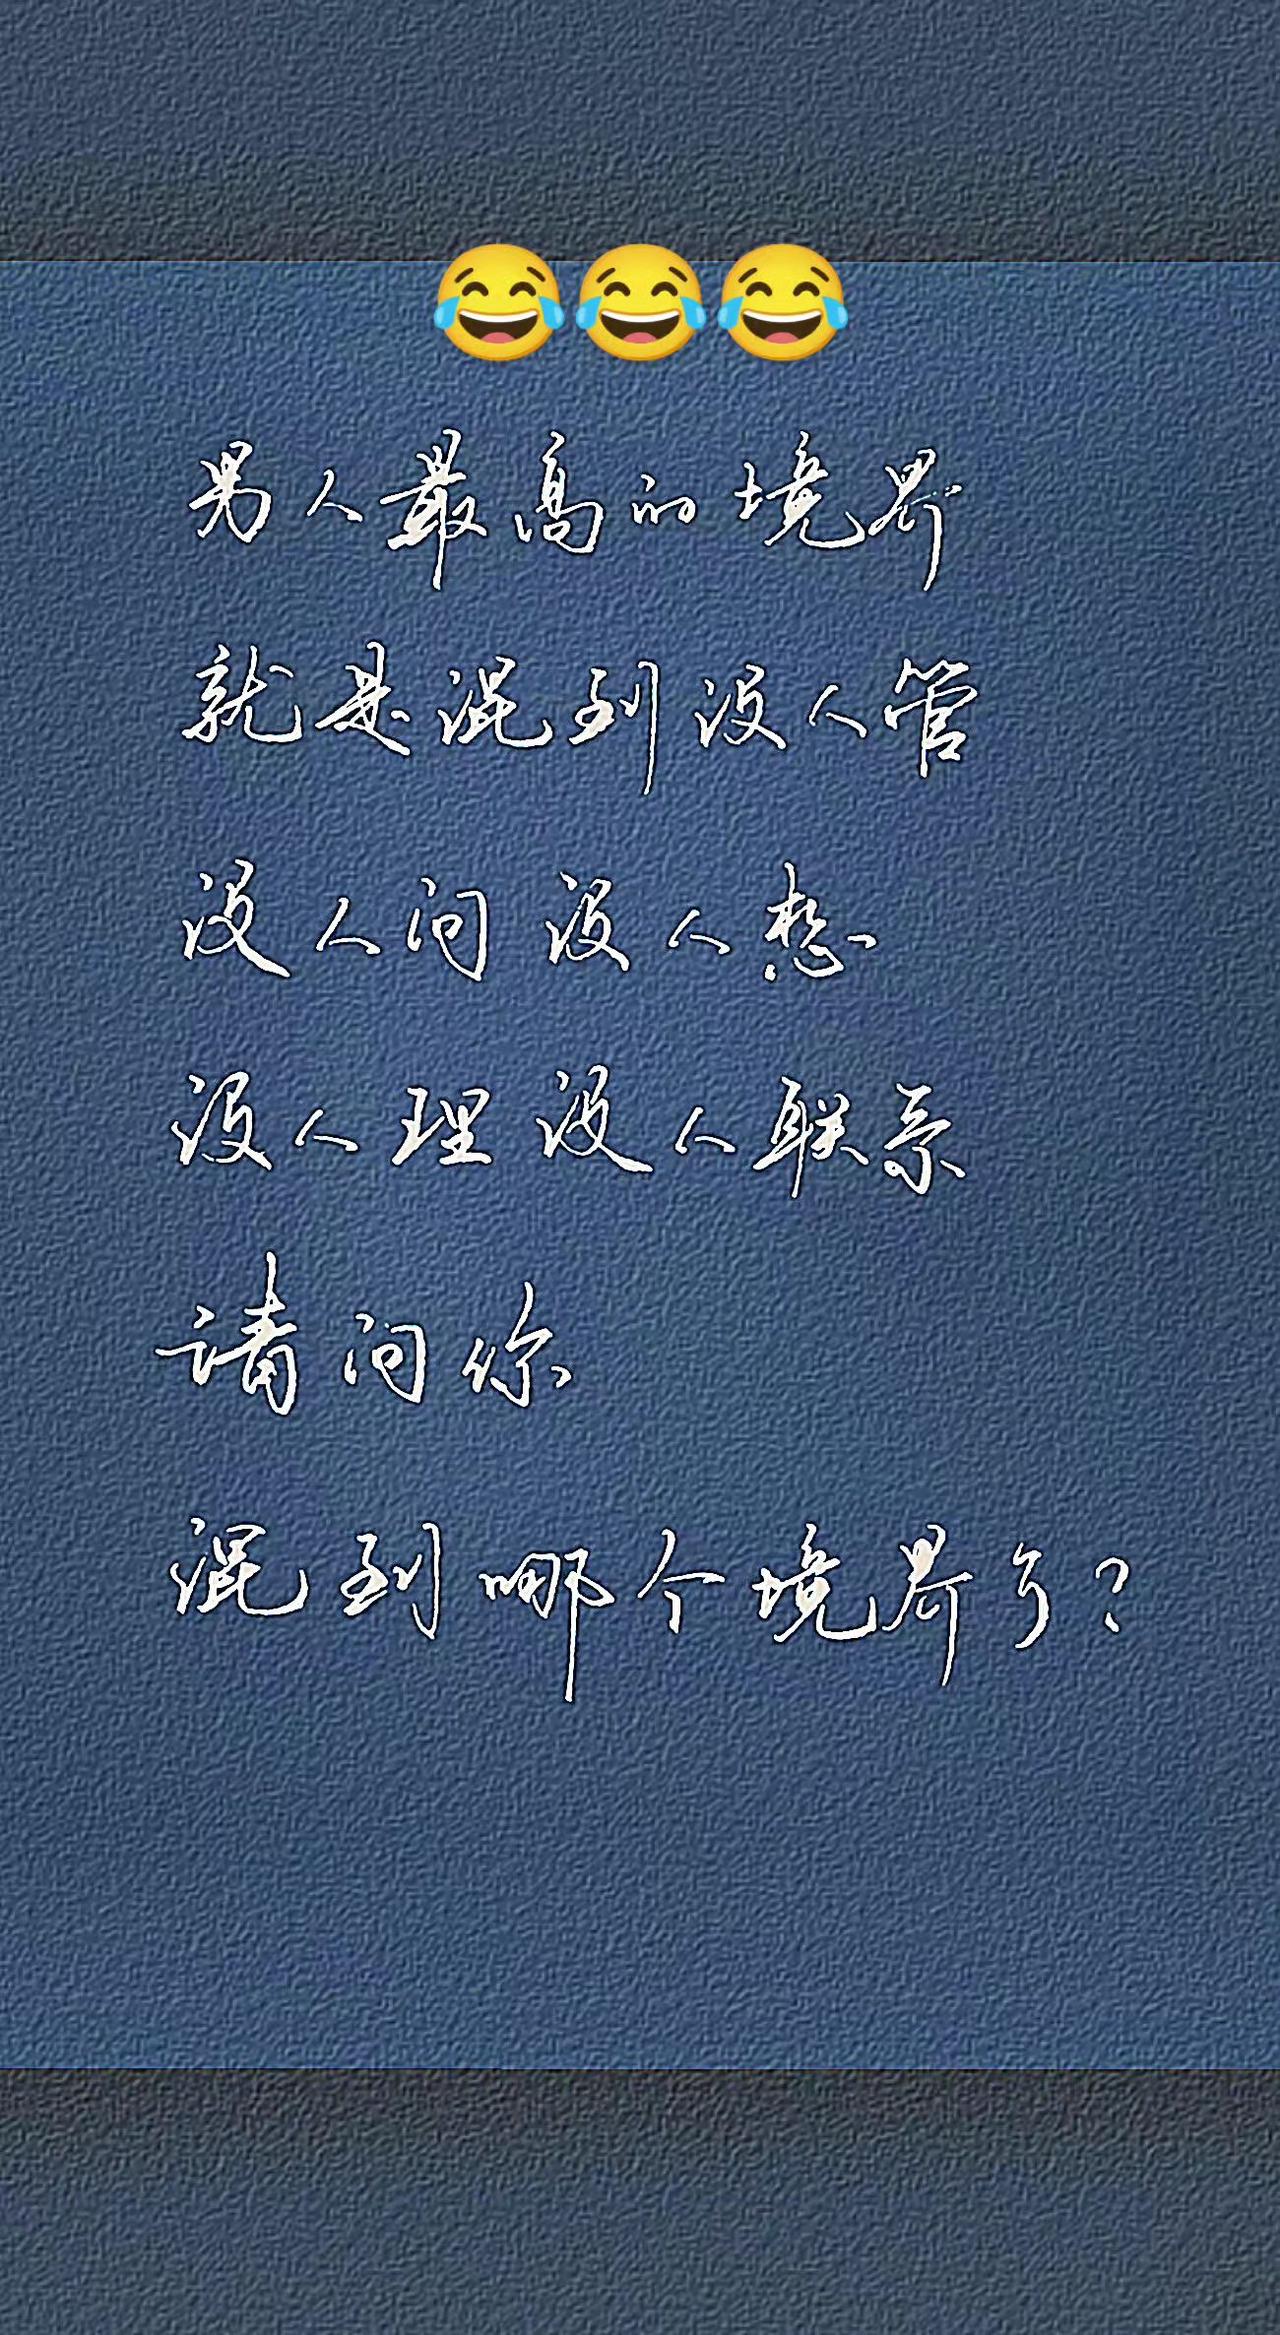 😂😂😂
男人最高的境界
就是混到没人管
没人问 没人想
没人理 没人联系
请问你
混到哪个境界了?